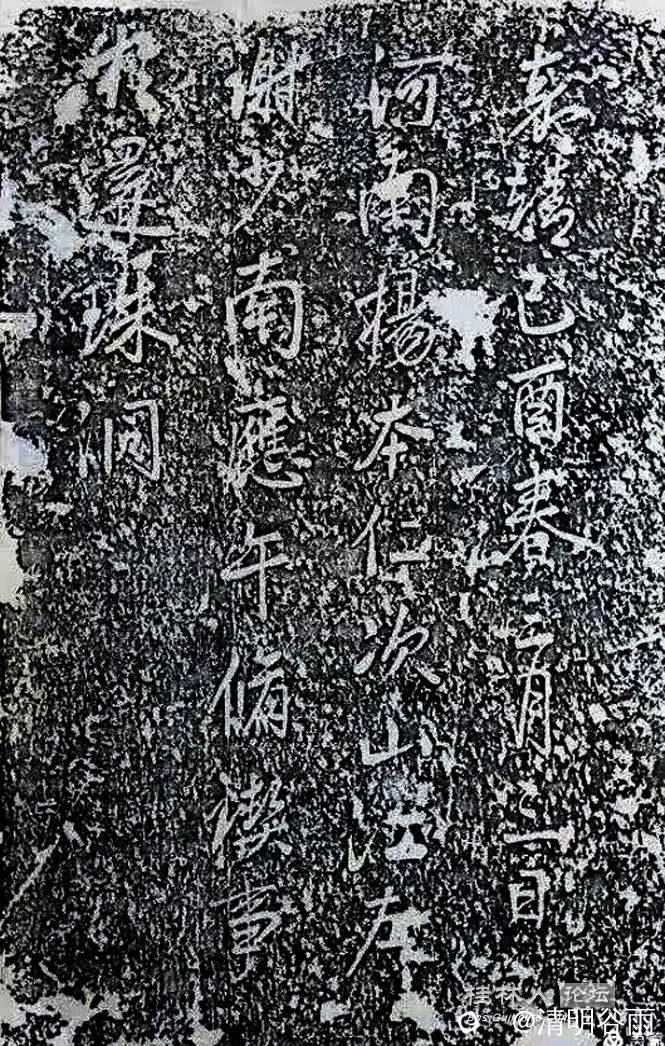 嘉靖己酉春三月三日
河南楊本仁次山江左
謝少南應午脩禊事
於還珠洞
桂林人 论坛
@清明谷雨